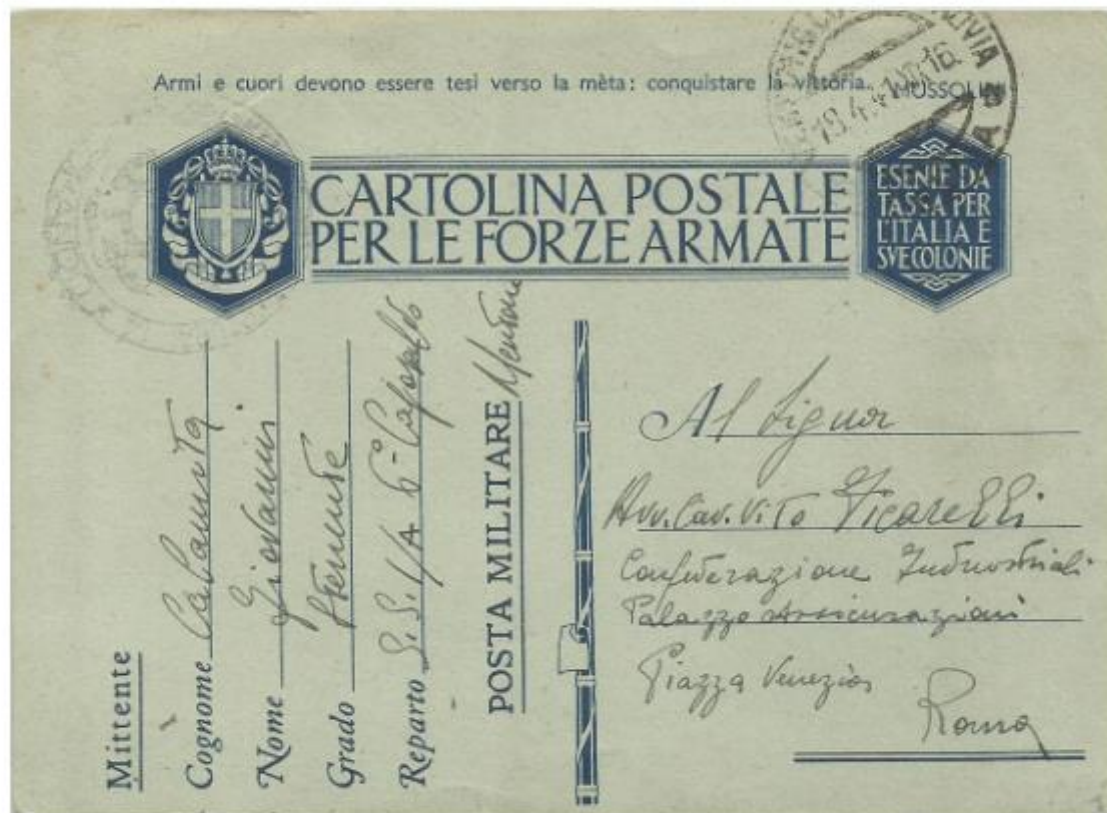 Armi e cuori devono essere tesi verso la mèta: conquistare la vittoria. MUSSOLINI
CARTOLINA POSTALE
PER LE FORZE ARMATE
ESENTE DA
TASSA PER
L'ITALIA E
SVE COLONIE
Mittente
Cognome Calamita
Nome Giovanni
Grado
Reparto
POSTA MILITARE Mentone
Al Signor
Avv. Cav. Vito Ficarelli
Confederazione Industriali
Palazzo Assicurazioni
Piazza Venezia
Roma